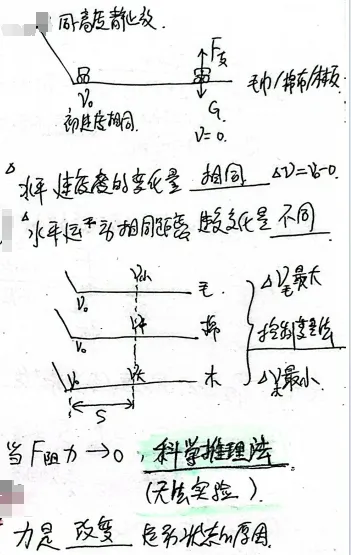 同高度静止放.
F支
V₀
毛巾/棉布/木板
初速度相同.
G
V=0.
△水平速度的变化量 相同 ΔV=V₀-0.
△水平运动相同距离 速度变化量 不同
V小 毛 ΔV毛最大
V₀
V中 棉 控制变量法
V₀
V大 木 ΔV木最小.
V₀
S
当F阻力→0, 科学推理法
(无法实验).
力是 改变 运动状态的原因.